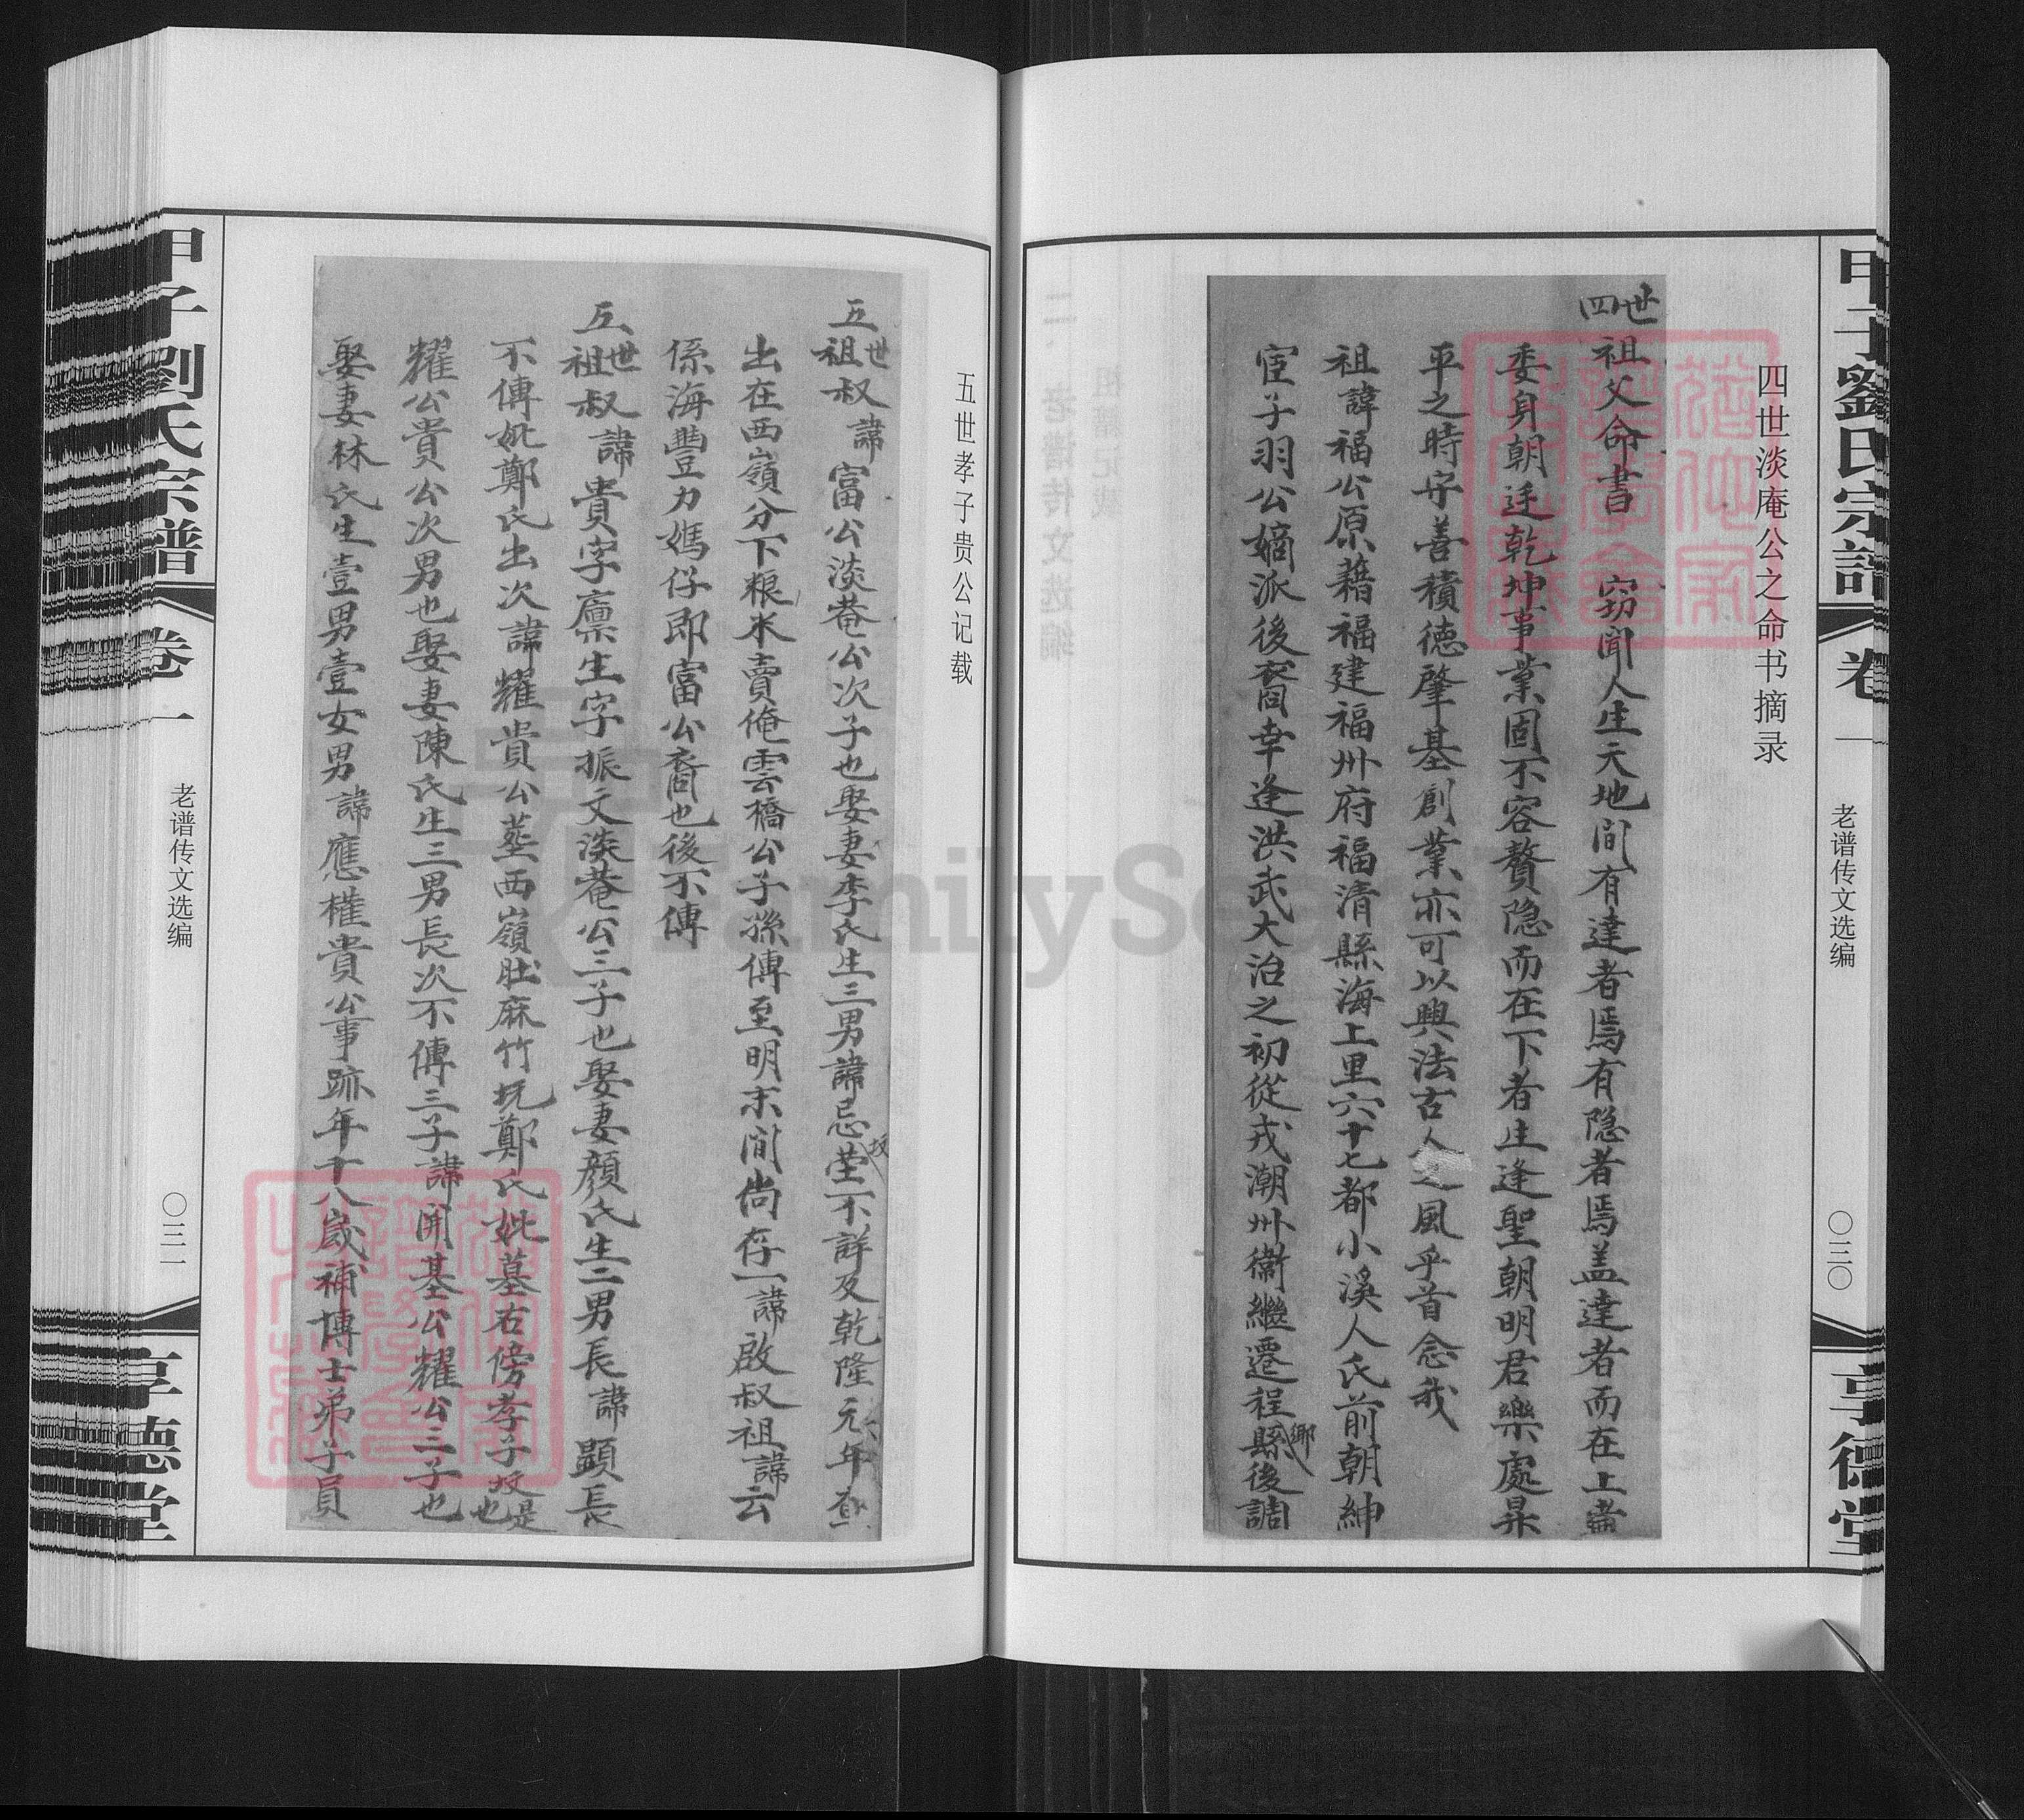 甲子劉氏宗譜
卷一
老谱传文选编
〇三〇
享德堂
四世淡庵公之命书摘录
四世祖父命書 窃聞人生天地间有達者焉有隐者焉盖達者而在上者
委身朝廷乾坤事業固不容贅隐而在下者生逢聖朝明君樂處昇
平之時守善積德肇基創業亦可以興法古人之風乎首念我
祖諱福公原藉福建福州府福清縣海上里六十七都小溪人氏前朝紳
宦子羽公嫡派後裔幸逢洪武大治之初從戎潮州衛繼遷程鄉縣後調
五世孝子贵公记载
五世祖叔諱富公淡菴公次子也娶妻李氏生三男諱忌塋坟不詳及乾隆元年查
出在西嶺分下粮水賣俺雲橋公子孫傳至明末间尚存一諱啟叔祖諱云
係海豐力媽仔即富公裔也後不傳
五世祖叔諱貴字廪生字振文淡菴公三子也娶妻顏氏生二男長諱顕長
不傳妣鄭氏出次諱耀貴公塟西嶺肚麻竹坑鄭氏妣墓右傍孝子坟是也
耀公貴公次男也娶妻陳氏生三男長次不傳三子諱開基公耀公三子也
娶妻林氏生壹男壹女男諱應權貴公事跡年十八歲補博士弟子員
甲子劉氏宗譜
卷一
老谱传文选编
〇三一
享德堂
FamilySearch